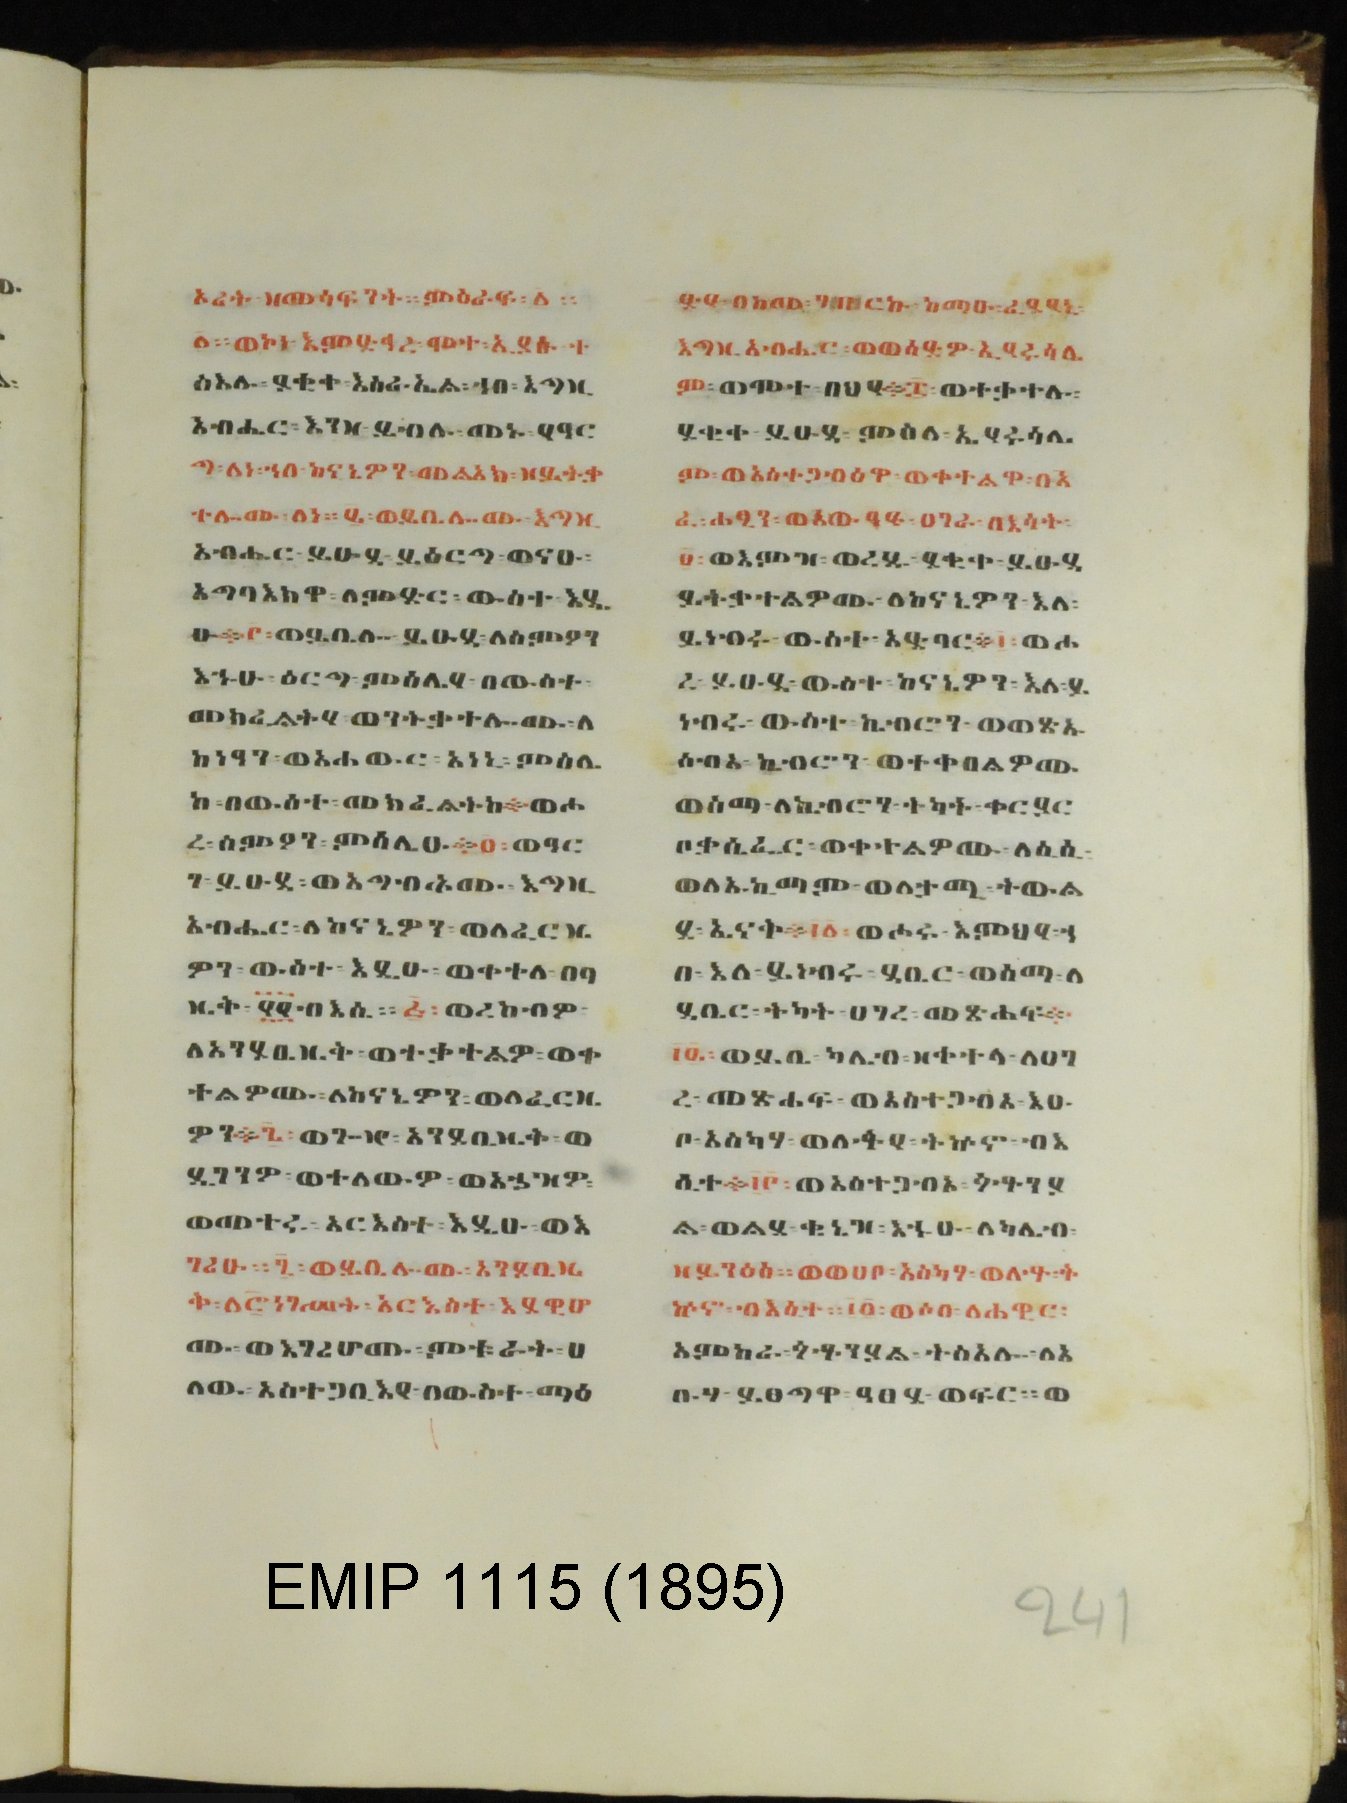 ኦሪት ፡ ዘመሳፍንት ። ምዕራፍ ፡ ፩ ።
፩ ። ወኮነ ፡ እምድኅረ ፡ ሞተ ፡ ኢያሱ ፡ ተ
ስእሉ ፡ ደቂቀ ፡ እስራኤል ፡ ኀበ ፡ እግዚ
አብሔር ፡ እንዘ ፡ ይብሉ ፡ መኑ ፡ የዓር
ግ ፡ ለነ ፡ ኀበ ፡ ከናኔዎን ፡ መልአከ ፡ ዘይትቃ
ተሎሙ ፡ ለነ ። ፪ ፡ ወይቤሎሙ ፡ እግዚ
አብሔር ፡ ይሁዳ ፡ ይዕርግ ፡ ወናሁ ፡
አግባእክዋ ፡ ለምድር ፡ ውስተ ፡ እዴ
ሁ ፨ ፫ ፡ ወይቤሎ ፡ ይሁዳ ፡ ለስምዖን
እኁሁ ፡ ዕርግ ፡ ምስሌየ ፡ በውስተ ፡
መክፈልትየ ፡ ወንትቃተሎሙ ፡ ለ
ከነዓን ፡ ወአሐውር ፡ አነኒ ፡ ምስሌ
ከ ፡ በውስተ ፡ መክፈልትከ ፨ ወሖ
ረ ፡ ስምዖን ፡ ምስሌሁ ፨ ፬ ፡ ወዓር
ገ ፡ ይሁዳ ፡ ወአግብኦሙ ፡ እግዚ
አብሔር ፡ ለከናኔዎን ፡ ወለፌርዜ
ዎን ፡ ውስተ ፡ እዴሁ ፡ ወቀተለ ፡ በባ
ዜቅ ፡ ፼ ብእሴ ። ፭ ፡ ወረከብዎ ፡
ለአዶንያቤዜቅ ፡ ወተቃተልዎ ፡ ወቀ
ተልዎሙ ፡ ለከናኔዎን ፡ ወለፌርዜ
ዎን ፨ ፮ ፡ ወጐየ ፡ አዶንቤዜቅ ፡ ወ
ዴገንዎ ፡ ወተለውዎ ፡ ወአኀዝዎ ፡
ወመተሩ ፡ አርእስተ ፡ እዴሁ ፡ ወእ
ገሪሁ ። ፯ ፡ ወይቤሎሙ ፡ አዶንቤዜ
ቅ ፡ ለ፸ነገሥት ፡ አርእስተ ፡ እደዊሆ
ሙ ፡ ወእገሪሆሙ ፡ ምቱራት ፡ ሀ
ለዉ ፡ አስተጋቢእየ ፡ በውስተ ፡ ማዕ
ድየ ፡ በከመ ፡ ገበርኩ ፡ ከማሁ ፡ ፈደየኒ ፡
እግዚአብሔር ፡ ወወሰድዎ ፡ ኢየሩሳሌ
ም ፡ ወሞተ ፡ በህየ ፨ ፰ ፡ ወተቃተሉ ፡
ደቂቀ ፡ ይሁዳ ፡ ምስለ ፡ ኢየሩሳሌ
ም ፡ ወአስተጋብዕዋ ፡ ወቀተልዋ ፡ በአ
ፈ ፡ ሐፂን ፡ ወአውዓዩ ፡ ሀገራ ፡ በእሳት ፡
፱ ፡ ወእምዝ ፡ ወረዱ ፡ ደቂቀ ፡ ይሁዳ
ይትቃተልዎሙ ፡ ለከናኔዎን ፡ እለ ፡
ይነብሩ ፡ ውስተ ፡ አድባር ፨ ፲ ፡ ወሖ
ረ ፡ ይሁዳ ፡ ውስተ ፡ ከናኔዎን ፡ እለ ፡ ይ
ነብሩ ፡ ውስተ ፡ ኬብሮን ፡ ወወጽኡ
ሰብአ ፡ ኬብሮን ፡ ወተቀበልዎሙ
ወስማ ፡ ለኬብሮን ፡ ትካት ፡ ቀርያር
ቦቃሴፌር ፡ ወቀተልዎሙ ፡ ለሴሲ ፡
ወለአኪማም ፡ ወለታሚ ፡ ትውል
ደ ፡ ኤናቅ ፨ ፲፩ ፡ ወሖሩ ፡ እምህየ ፡ ኀ
በ ፡ እለ ፡ ይነብሩ ፡ ዳቤር ፡ ወስማ ፡ ለ
ዳቤር ፡ ትካት ፡ ሀገረ ፡ መጽሐፍ ፨
፲፪ ፡ ወይቤ ፡ ካሌብ ፡ ዘቀተላ ፡ ለሀገ
ረ ፡ መጽሐፍ ፡ ወአስተጋብአ ፡ እሁ
ቦ ፡ አስካሃ ፡ ወለትየ ፡ ትኩኖ ፡ ብእ
ሲተ ፨ ፲፫ ፡ ወአስተጋብአ ፡ ጎቶንያ
ል ፡ ወልደ ፡ ቄኔዝ ፡ እኁሁ ፡ ለካሌብ ፡
ዘይንዕስ ። ወወሀቦ ፡ አስካሃ ፡ ወለቶ ፡ ት
ኩኖ ፡ ብእሲተ ። ፲፬ ፡ ወሶበ ፡ ለሐዊር ፡
አምከራ ፡ ጎቶንያል ፡ ትስአሎ ፡ ለአ
ቡሃ ፡ ይፀግዋ ፡ ዓፀደ ፡ ወፍር ። ወ
EMIP 1115 (1895)
241